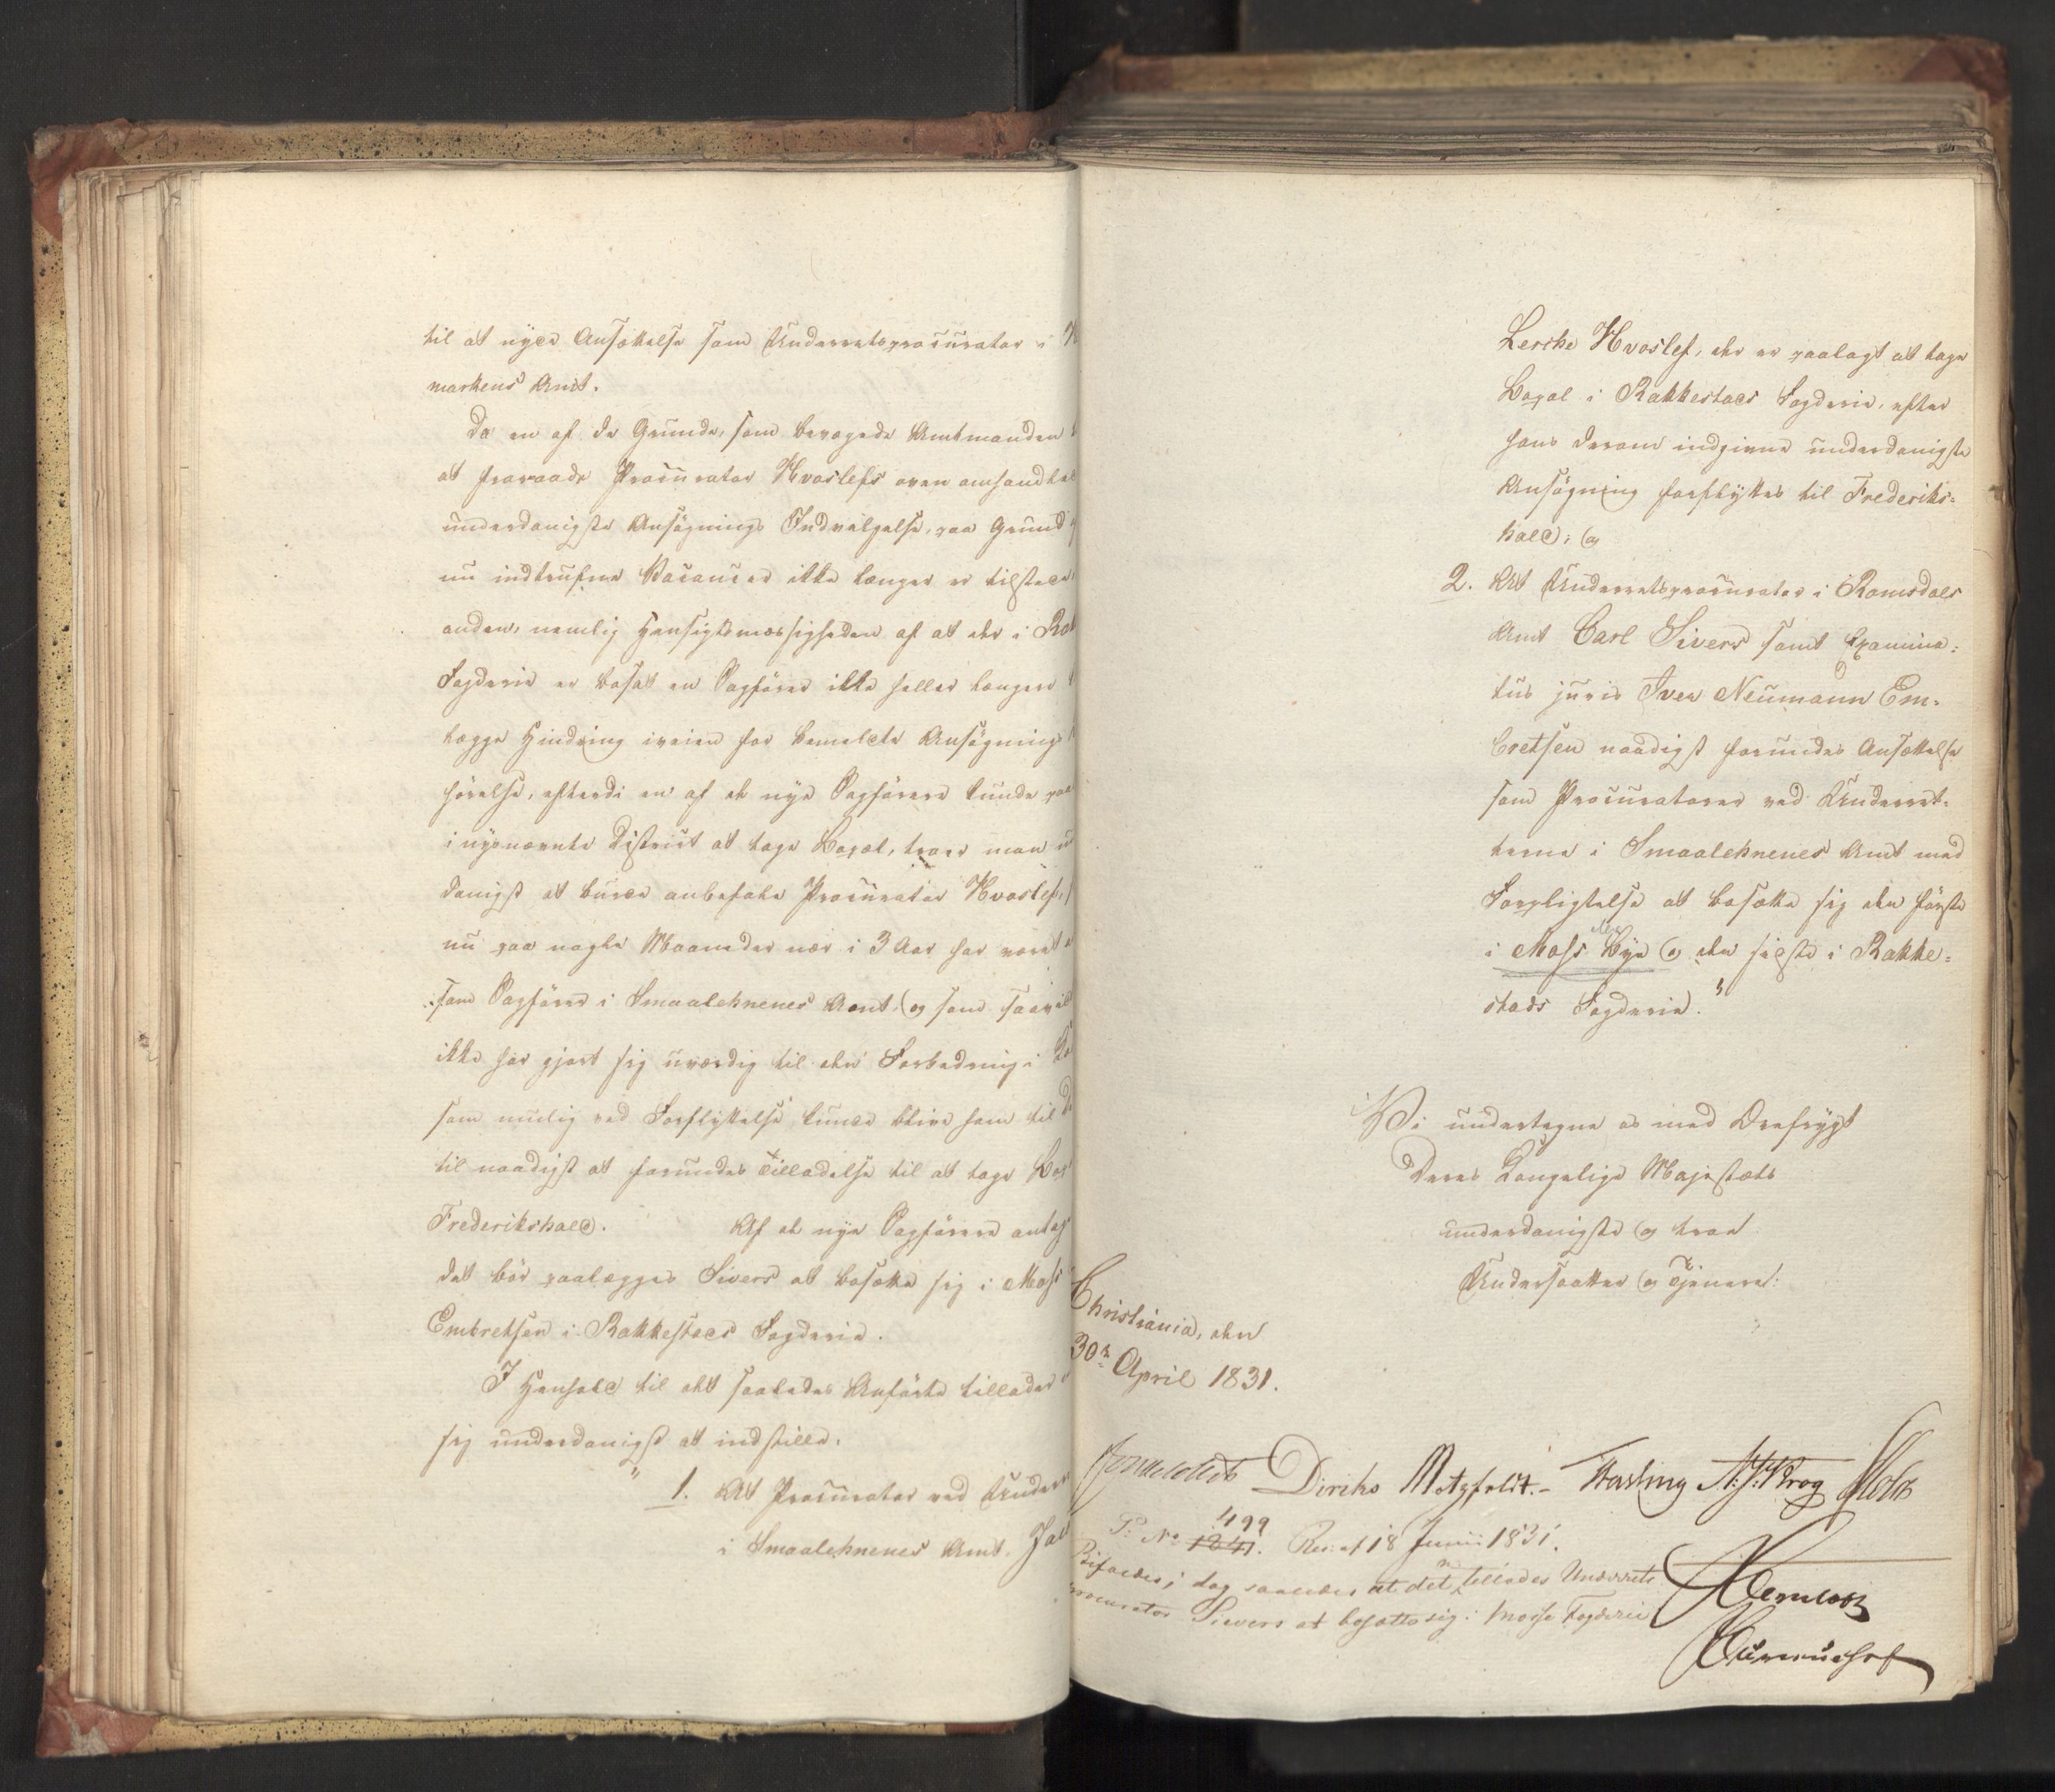 til at nyde Ansættelse som Underretsprocurator i
markens Amt.
Da en af de Grunde, som bevægede Amtmanden
at fraraade Procurator Hvoslefs oven omhandlede
underdanigste Ansøgnings Indvilgelse, paa Grund
nu indtrufne Vacancer ikke længer er tilstede,
anden, nemlig Hensigtsmæssigheden af at der i Rak
Fogderie er bosat en Sagfører ikke heller længere
lægge Hindring iveien for bemeldte Ansøgnings
hørelse, efterdi en af de nye Sagførere kunde paa
i nysnævnte District at tage Bopæl, troer man
danigst at burde anbefale Procurator Hvoslef,
nu paa nogle Maaneder nær i 3 Aar har været
som Sagfører i Smaalehnenes Amt, og som saavidt
ikke har gjort sig uværdig til den Forbedring i
som mulig ved Forflyttelse kunde blive ham til
til naadigst at forundes Tilladelse til at tage Bop
Frederikshald. Af de nye Sagførere antag
det bör paalægges Sivers at bosætte sig i Moss
Embretsen i Rakkestads Fogderie.
I Henhold til det saaledes Anførte tillader
sig underdanigst at indstille:
" 1. At Procurator ved Under
i Smaalehnenes Amt, Jac
Lerche Hvoslef, der er paalagt at tage
Bopæl i Rakkestads Fogderie, efter
hans derom indgivne underdanigste
Ansøgning forflyttes til Frederiks-
hald; og
2. At Underretsprocurator i Romsdals
Amt Carl Sivers samt Examina-
tus juris Iver Neumann Em-
bretsen naadigst forundes Ansættelse
som Procuratorer ved Underret-
terne i Smaalehnenes Amt med
Forpligtelse at bosætte sig den første
i Moss Bye og den sidste i Rakke-
stads Fogderie."
Vi undertegne os med Ærefrygt
Deres Kongelige Majestæts
underdanigste og troe
Undersaatter og Tjenere:
Christiania, den
30te April 1831.
Diriks Motzfeldt.- Fasting N. J. Krog Holst
P: No 1841. 499 Res: af 18 Junii 1831.
Bifaldes i dag saaledes at det tillades Underrets
procurator Sievers at bosætte sig i Mosse Fogderie